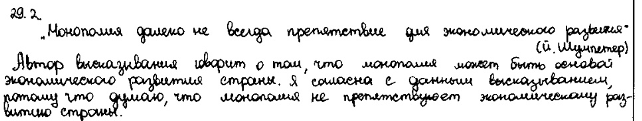 29.2.
„Монополия далеко не всегда препятствие для экономического развития"
(Й. Шумпетер)
Автор высказывания говорит о том, что монополия может быть основой
экономического развития страны. Я согласна с данным высказыванием,
потому что думаю, что монополия не препятствует экономическому раз-
витию страны.